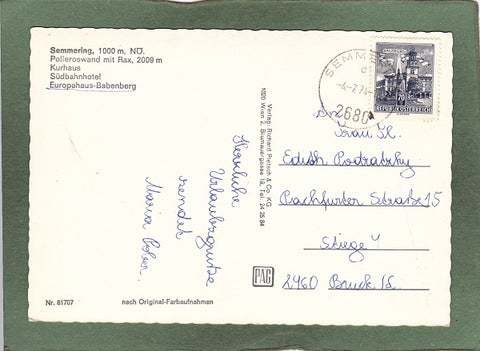 Semmering, 1000 m, NÖ.
Polleroswand mit Rax, 2009 m
Kurhaus
Südbahnhotel
Europahaus-Babenberg
SEMME
-4.-7.74-
2680
REPUBLIK ÖSTERREICH
An
Frau Fl.
Edith Podratzky
Pachfurter Straße 15
Stiege 4
2460 Bruck/L.
Herrliche
Urlaubsgrüße
sendet
Maria
Verlag: Richard Pietsch & Co. KG.
1020 Wien 2, Blumauergasse 19, Tel. 24 25 84
PAG
Nr. 61707
nach Original-Farbaufnahmen